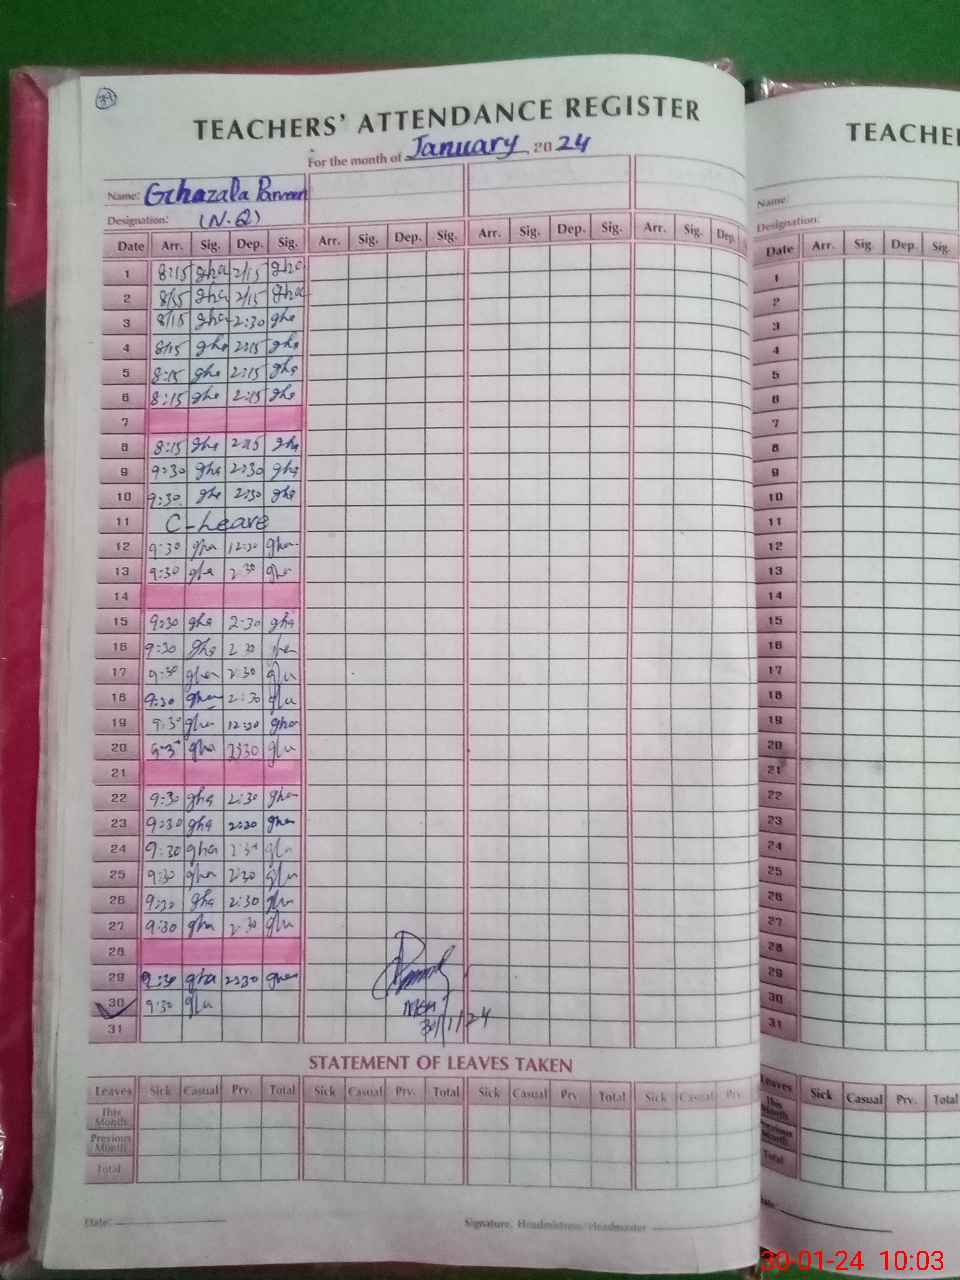 39
TEACHERS' ATTENDANCE REGISTER
For the month of January 2024
Name: Gchazala Parveen
Designation: (N.Q)
Date Arr. Sig. Dep. Sig. Arr. Sig. Dep. Sig. Arr. Sig. Dep. Sig. Arr. Sig. Dep.
1 8:15 gha 2/15 gha
2 8/15 gha 2/15 gha
3 8/15 gha 2:30 gha
4 8/15 gha 2:15 gha
5 8:15 gha 2:15 gha
6 8:15 gha 2:15 gha
7
8 8:15 gha 2:15 gha
9 9:30 gha 2:30 gha
10 9:30 gha 2:30 gha
11 C-Leave
12 9:30 gha 12:30 gha
13 9:30 gha 2:30 gha
14
15 9:30 gha 2:30 gha
16 9:30 gha 2:30
17 9:30 gha 2:30 gha
18 9:30 gha 2:30 gha
19 9:30 gha 12:30 gha
20 9:30 gha 2:30 gha
21
22 9:30 gha 2:30 gha
23 9:30 gha 2:30 gha
24 9:30 gha 2:30 gha
25 9:30 gha 2:30 gha
26 9:30 gha 2:30 gha
27 9:30 gha 2:30 gha
28
29 9:30 gha 2:30 gha
30 9:30 gha
31
30/1/24
STATEMENT OF LEAVES TAKEN
Leaves Sick Casual Prv. Total Sick Casual Prv. Total Sick Casual Prv. Total Sick Casual Prv.
This Month
Previous Month
Total
Date:
Signature, Headmistress/Headmaster
TEACHE
Name:
Designation:
Date Arr. Sig. Dep. Sig.
1
2
3
4
5
6
7
8
9
10
11
12
13
14
15
16
17
18
19
20
21
22
23
24
25
26
27
28
29
30
31
Leaves Sick Casual Prv. Total
This Month
Previous Month
Total
30-01-24 10:03